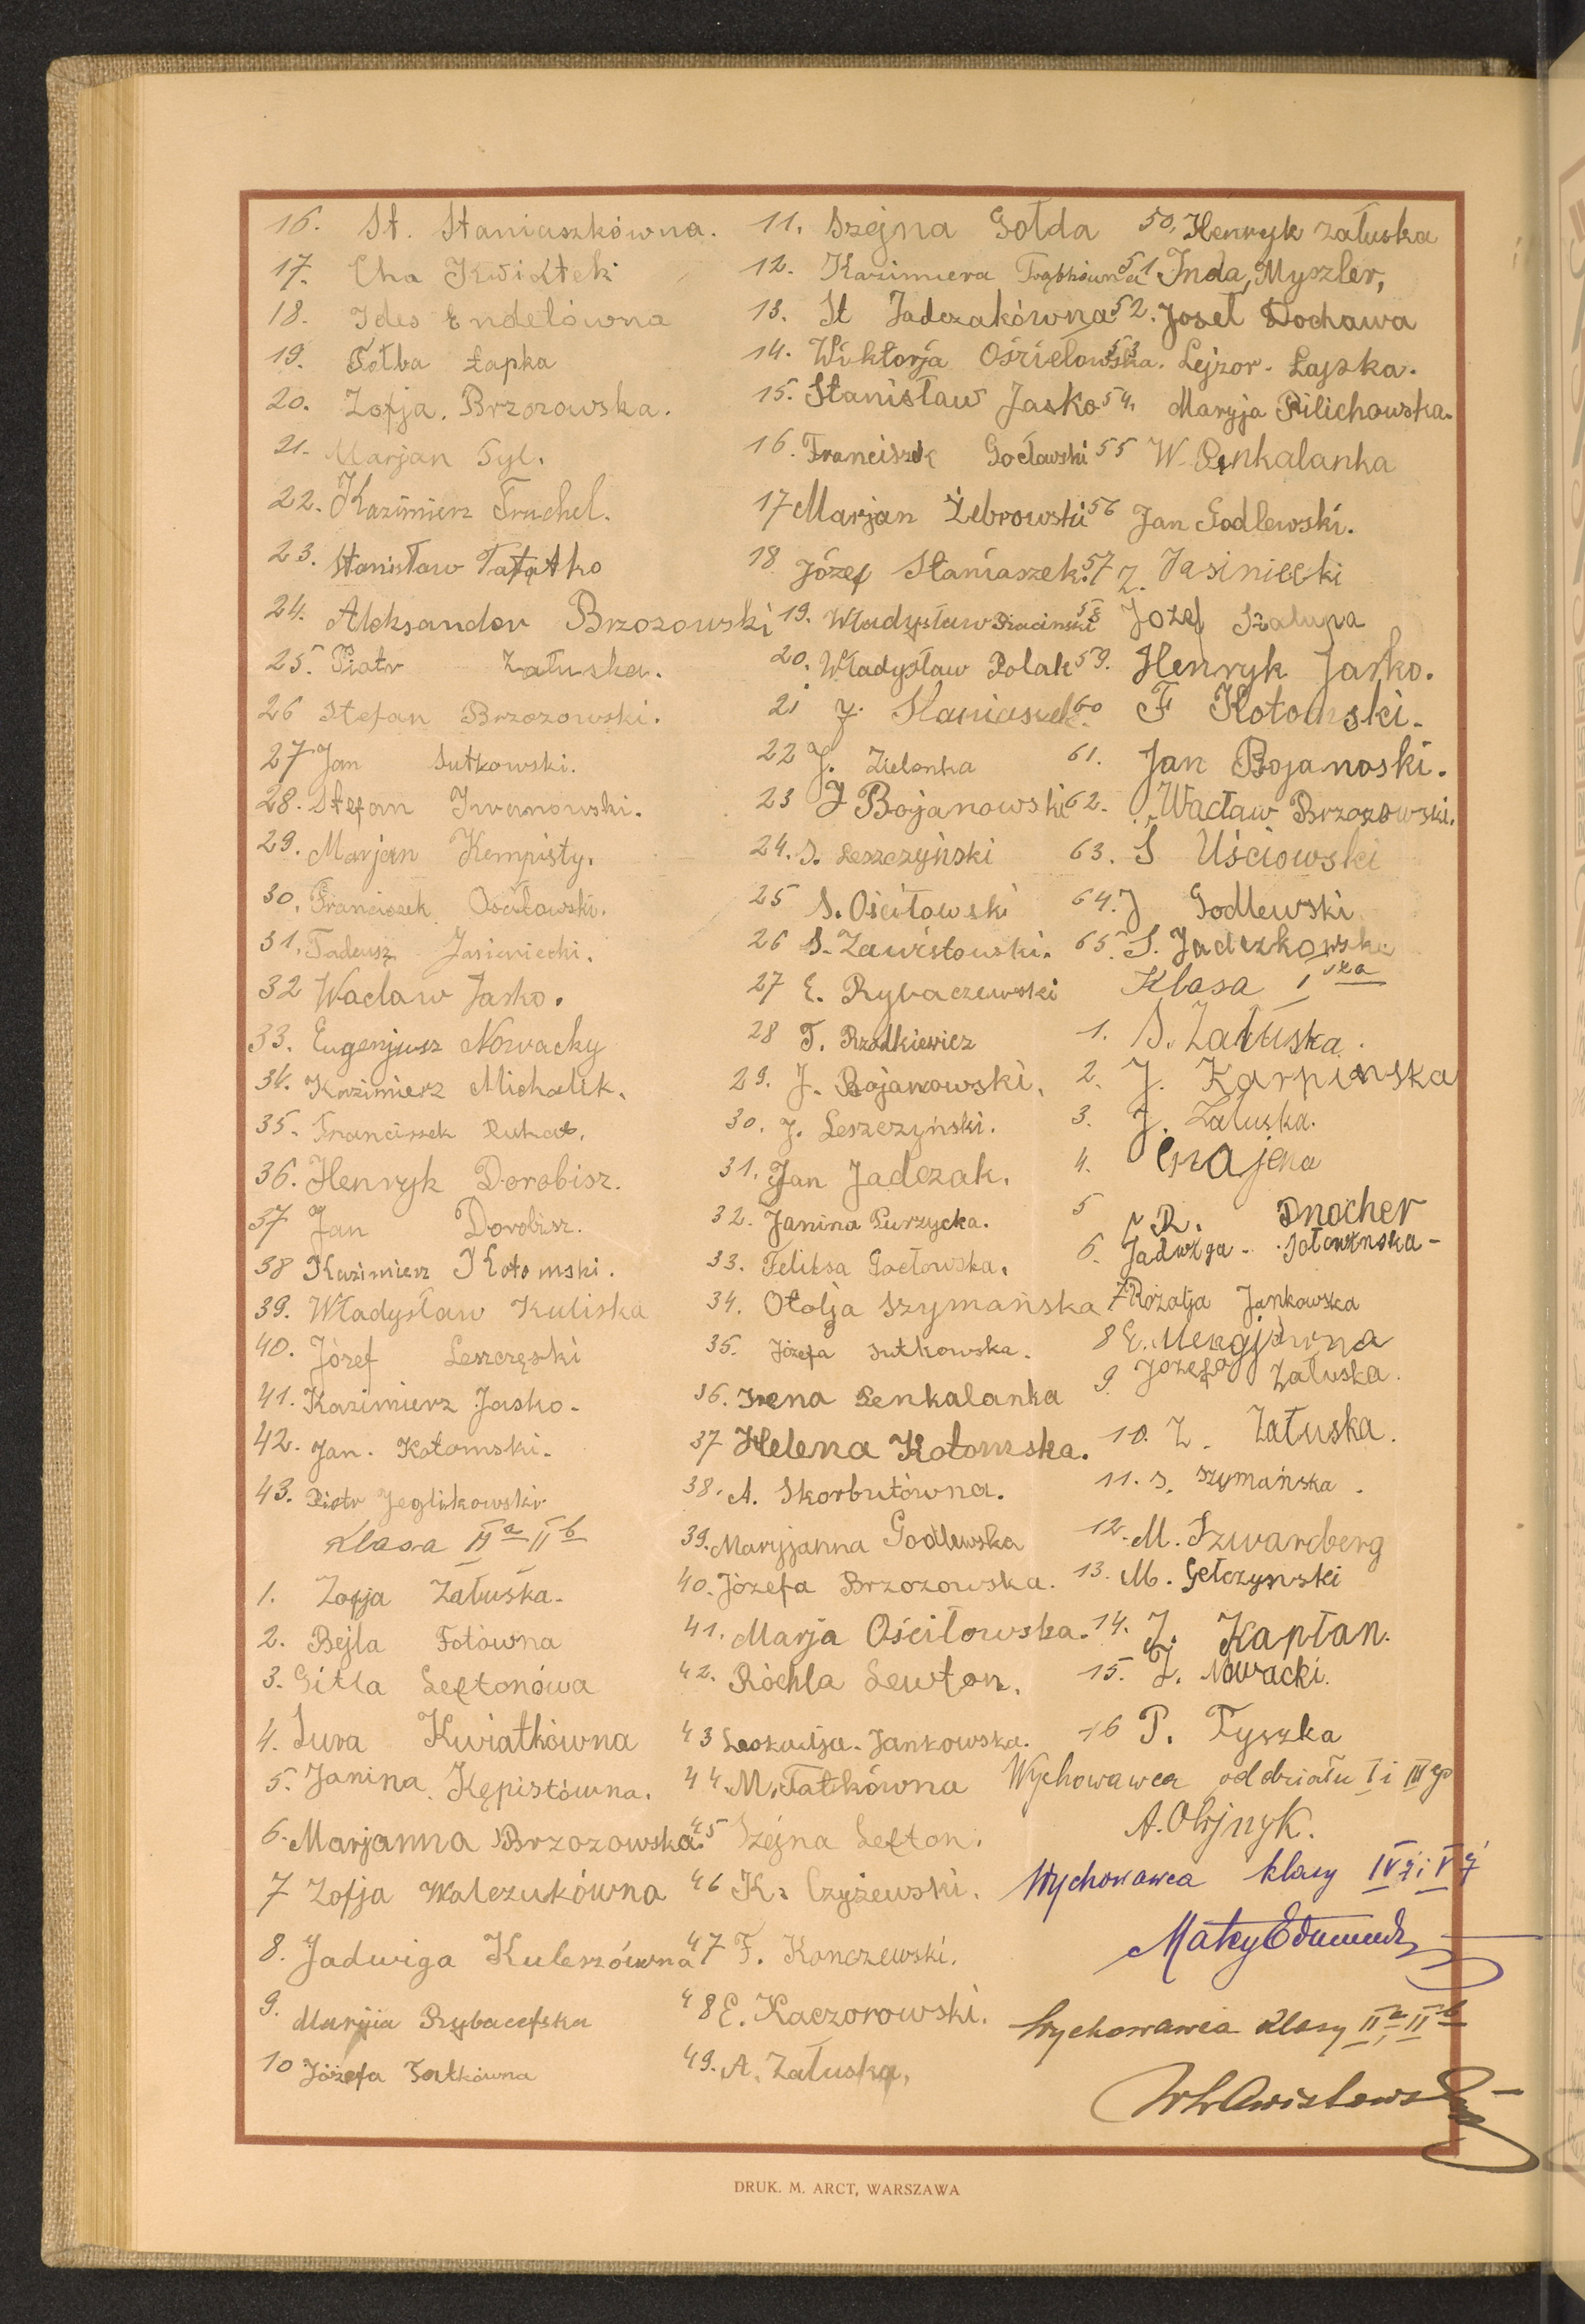 16. St. Staniaszkówna.
17. Cha Kwiatek
18. Ides Endelówna
19. Gołba Łapka
20. Zofja. Brzozowska.
21. Marjan Tyl.
22. Kazimierz Truchel.
23. Stanisław Tatatko
24. Aleksander Brzozowski
25. Piotr Załuska.
26 Stefan Brzozowski.
27 Jan Sutkowski.
28. Stefan Iwanowski.
29. Marjan Kempisty.
30. Franciszek Ościłowski.
31. Tadeusz Jasieniecki.
32 Wacław Jasko.
33. Eugenjusz Nowacky
34. Kazimierz Michalik.
35. Franciszek Rukat.
36. Henryk Dorobisz.
37 Jan Dorobisz.
38 Kazimierz Kotomski.
39. Władysław Kuliska
40. Józef Leszczęski
41. Kazimierz Jasko.
42. Jan. Kotomski.
43. Piotr Jeglikowski.
Klasa II a II b
1. Zofja Załuska.
2. Bejla Fotówna
3. Gitla Leftonówa
4. Sura Kwiatkówna
5. Janina Kępistówna.
6. Marjanna Brzozowska.
7 Zofja Walczukówna
8. Jadwiga Kuleszówna
9. Maryjia Rybacefska
10 Józefa Tatkówna
11. Szejna Gołda
12. Kazimiera Trąbkówna
13. St Jadczakówna
14. Wiktorja Ościełowska.
15. Stanisław Jasko
16. Franciszek Gocławski
17 Marjan Żebrowski
18 Józef Staniaszek.
19. Władysław
20. Władysław Polak
21 J. Staniaszek.
22 J. Zielonka
23 J Bojanowski
24. S. Leszczyński
25 S. Ościłowski
26 S. Zawistowski.
27 E. Rybaczewski
28 T. Rzodkiewicz
29. J. Bojanowski.
30. J. Leszczyński.
31. Jan Jadczak.
32. Janina Purzycka.
33. Feliksa Gocłowska.
34. Otolja Szymańska
35. Józefa Sutkowska.
36. Irena Penkalanka
37 Helena Kotomska.
38. A. Skorbutówna.
39. Maryjanna Godlewska
40. Józefa Brzozowska.
41. Marja Ościłowska.
42. Róchla Lewton.
43 Leokadja. Jankowska.
44. M. Tatkówna
45 Szejna Lefton.
46 K. Czyżewski.
47 F. Konczewski.
48 E. Kaczorowski.
49. A. Załuska.
50. Henryk Załuska
51 Inda, Myszler,
52. Josel Dochawa
53 Lejzor. Łapka.
54. Maryja Pilichowska.
55 W. Penkalanka
56 Jan Godlewski.
57 Z. Jasiniecki
58 Jozef Szalupa
59. Henryk Jasko.
60 F Kotomski.
61. Jan Bojanoski.
62. Wacław Brzozowski.
63. S Uściowski
64. J Godlewski
65. S. Jadczkowska
Klasa I sza
1. S. Załuska.
2. J. Karpinska
3. J. Załuska.
4.
5 R. Pnocher
6. Jadwiga
7 Rozalja Jankowska
8 E.
9. Józefa Załuska.
10. Z. Załuska.
11. S. Szymańska.
12. M. Szwarcberg
13. M. Gełczynski
14. J. Kapłan.
15. J. Nowacki.
16 P. Tyszka
Wychowawca oddziału I i III go
A. Olejnyk.
Wychowawca klasy IV ej i V ej
Matey Edmund
Wychowawca Klasy II a, II b
DRUK. M. ARCT, WARSZAWA